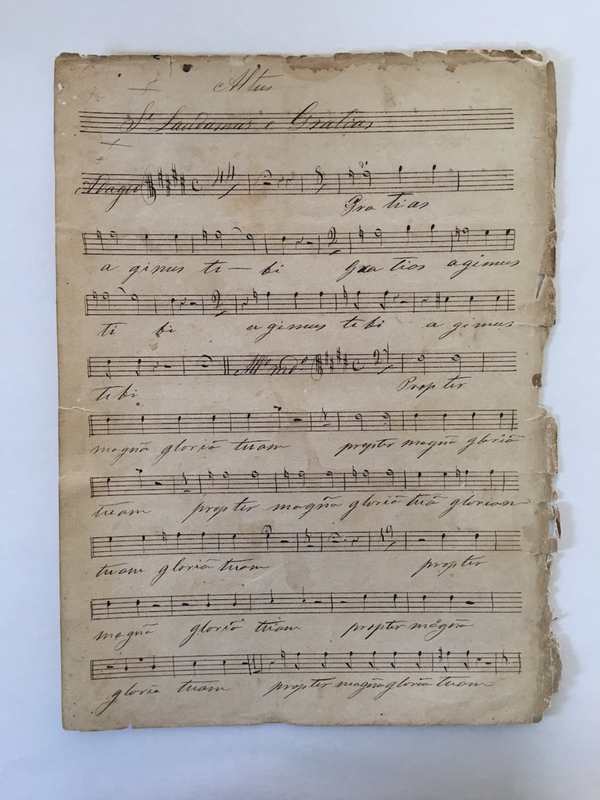 Altus
Sº Laudamus e Gratias
Adagio
Gra tias
a gimus ti – bi Gra tias agimus
ti bi a gimus tibi a gimus
Allº modº
tibi Prop ter
magnã gloriã tuam propter magnã gloriã
tuam prop ter magnã gloriã tuã gloriam
tuam gloriã tuam propter
magnã gloriã tuam propter magnã
gloriã tuam propter magnã gloriã tuam